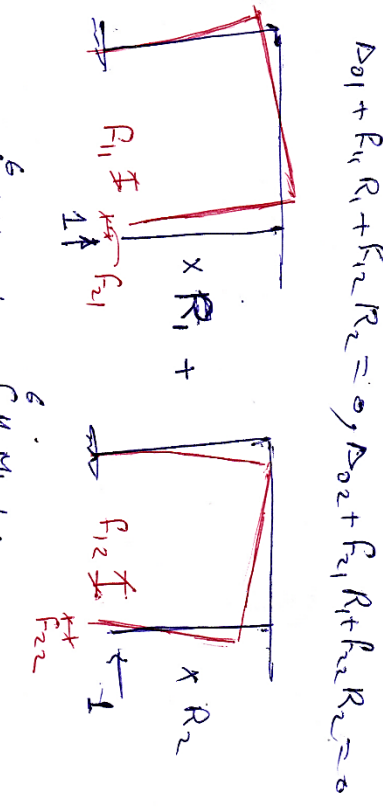 Δ01 + f11 R1 + f12 R2 = 0, Δ02 + f21 R1 + f22 R2 = 0
f11
1
f21
× R1 +
f12
f22
1
× R2